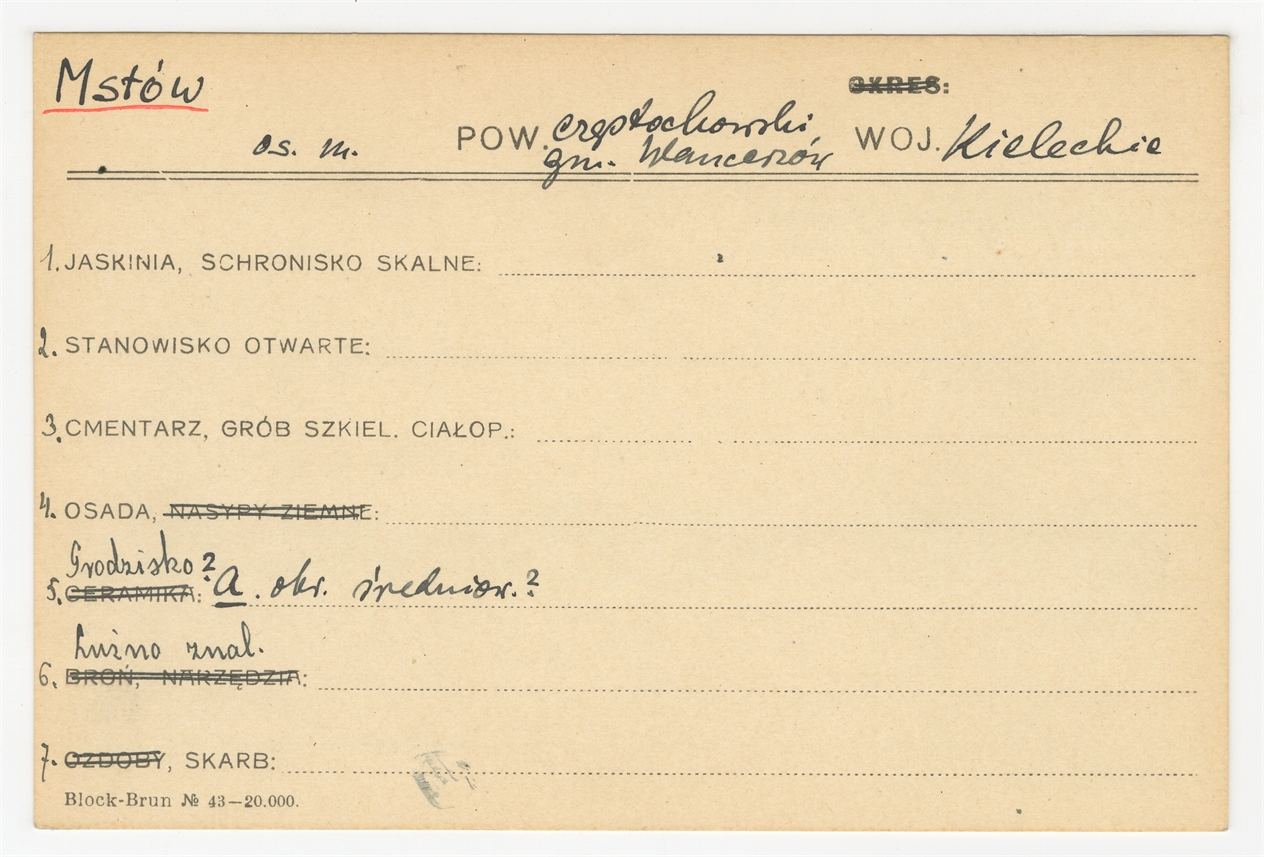 Mstów
OKRES:
os. m. POW. częstochowski WOJ. Kieleckie
gm. Wancerzów
1. JASKINIA, SCHRONISKO SKALNE:
2. STANOWISKO OTWARTE:
3. CMENTARZ, GRÓB SZKIEL. CIAŁOP.:
4. OSADA, NASYPY ZIEMNE:
Grodzisko?
5. CERAMIKA: A. okr. średniow.?
Luźno znal.
6. BROŃ, NARZĘDZIA:
7. OZDOBY, SKARB:
Block-Brun № 43—20.000.